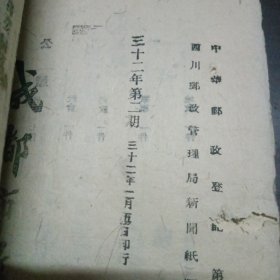 中華郵政登記第
四川郵政管理局新聞紙
三十二年第二期
三十二年一月五日印行
成都